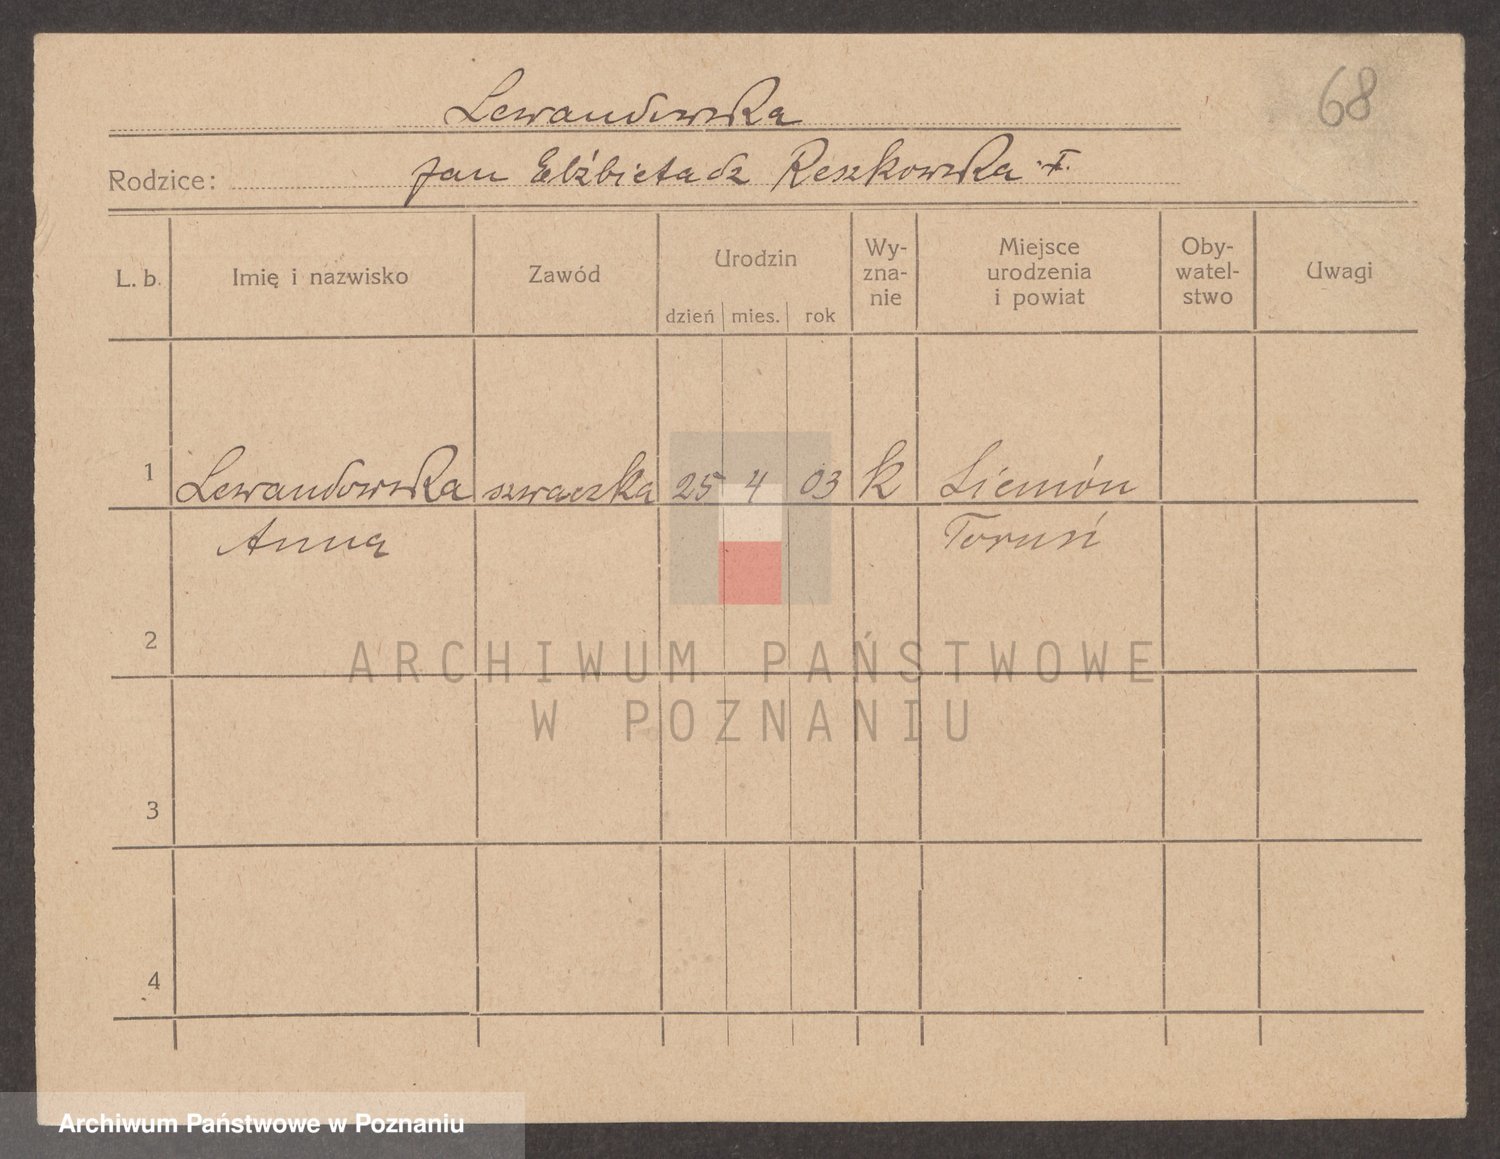 68
Lewandowska
Rodzice: Jan Elżbieta dz Reszkowska
L. b.
Imię i nazwisko
Zawód
Urodzin
dzień mies. rok
Wy-
zna-
nie
Miejsce
urodzenia
i powiat
Oby-
watel-
stwo
Uwagi
1 Lewandowska szwaczka 25 4 03 k Siemón
Anna Toruń
2
3
4
ARCHIWUM PAŃSTWOWE
W POZNANIU
Archiwum Państwowe w Poznaniu